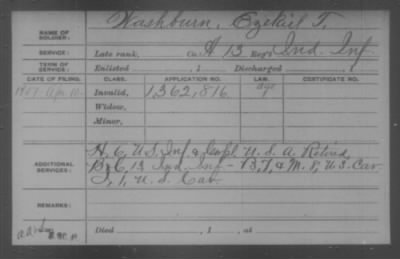 NAME OF SOLDIER: Washburn, Ezekiel T.
SERVICE: Late rank, Co. H 13 Reg't Ind. Inf
TERM OF SERVICE: Enlisted , 1 Discharged , 1
DATE OF FILING. CLASS. APPLICATION NO. LAW. CERTIFICATE NO.
1907 Apr 10 Invalid, 1,362,816 age
Widow,
Minor,
ADDITIONAL SERVICES: H, 6, U.S. Inf & U.S.A. Retired,
B & C, 13 Ind. Inf - B, 7, & M. 8, U.S. Cav.
I, 1, U.S. Cav.
REMARKS:
Died , 1 , at